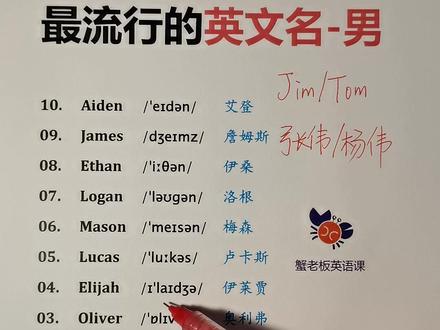 最流行的英文名-男
10. Aiden /ˈeɪdən/ 艾登
09. James /dʒeɪmz/ 詹姆斯
08. Ethan /ˈiːθən/ 伊桑
07. Logan /ˈləʊɡən/ 洛根
06. Mason /ˈmeɪsən/ 梅森
05. Lucas /ˈluːkəs/ 卢卡斯
04. Elijah /ɪˈlaɪdʒə/ 伊莱贾
03. Oliver 奥利弗
Jim/Tom
张伟/杨伟
蟹老板英语课